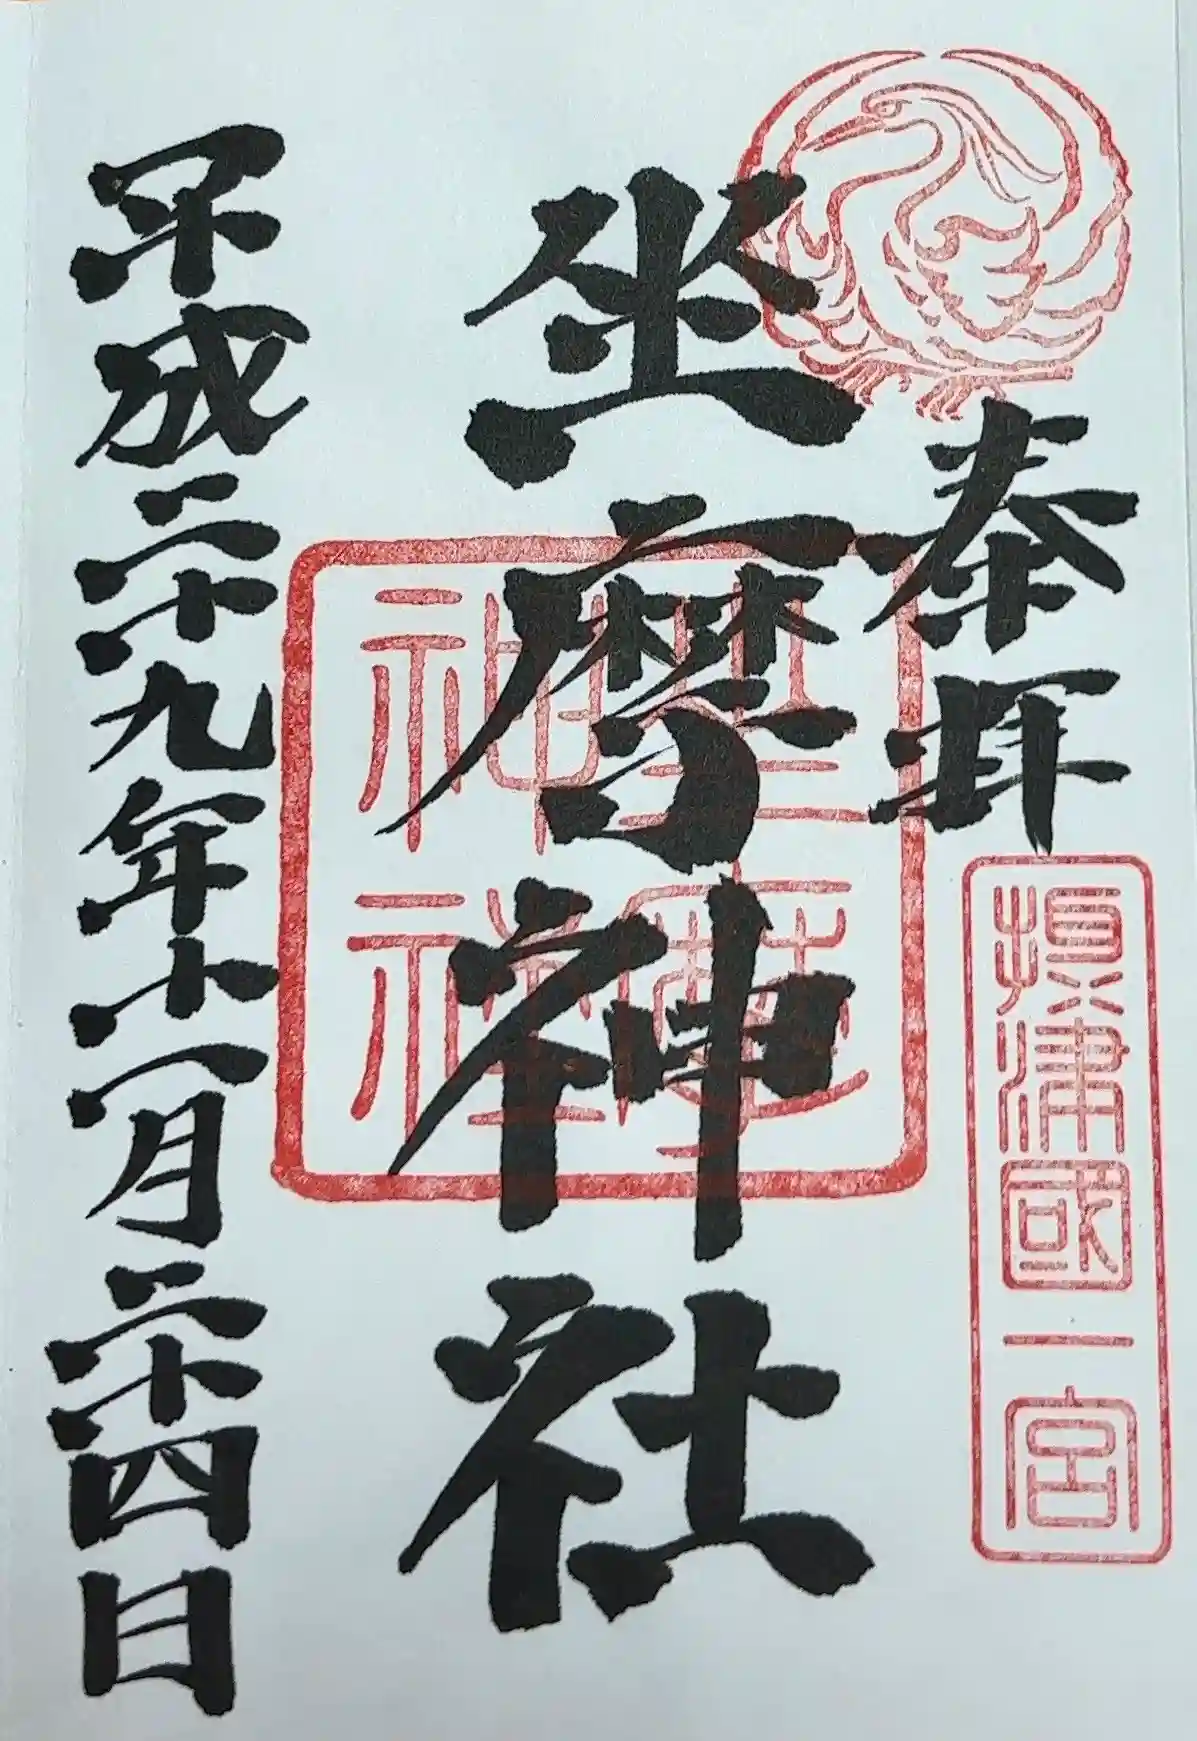 奉拝
摂津國一宮
坐摩神社
坐摩
神社
平成二十九年十一月二十四日